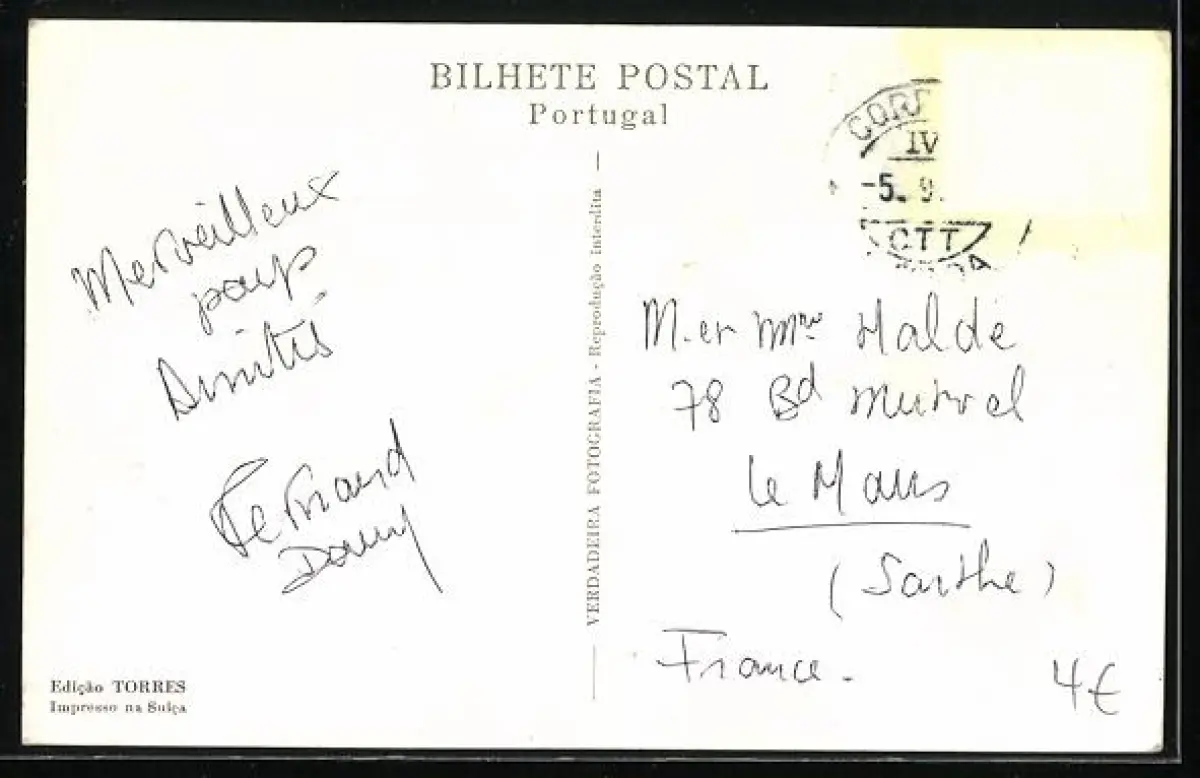 BILHETE POSTAL
Portugal
IV
-5. 9.
CTT
Merveilleux
pays
Fernand
Dany
VERDADEIRA FOTOGRAFIA - Reprodução interdita
M. et Mme Halde
78 Bd
Le Mans
(Sarthe)
France.
4€
Edição TORRES
Impresso na Suiça